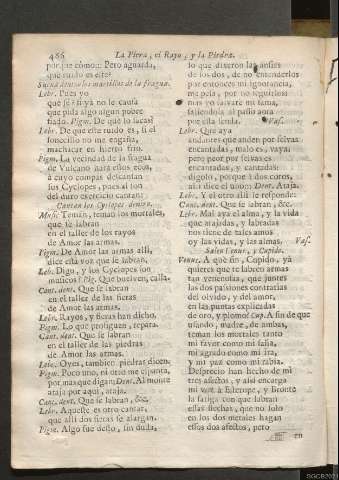 466 La Fiera, el Rayo, y la Piedra.
porque còmo::: Pero aguarda,
què ruido es este?
Suena dentro los martillos de la fragua.
Lebr. Pues yo
què sè? si yà no le causa
que pida algo algun pobre
fiado. Pigm. De què lo sacas?
Lebr. De que este ruido es, si el
sonecillo no me engaña,
machacar en hierro frio.
Pigm. La vecindad de la fragua
de Vulcano harà essos ecos,
à cuyo compàs descansan
sus Cyclopes, pues al son
del duro exercicio cantan:
Cantan los Cyclopes dentro.
Music. Teman, teman los mortales,
que se labran
en el taller de los rayos
de Amor las armas.
Pigm. De Amor las armas allì,
dice essa voz que se labran.
Lebr. Digo, y los Cyclopes son
musicos? Pig. Que buelven, calla.
Cant. dent. Que se labran
en el taller de las fieras
de Amor las armas.
Lebr. Rayos, y fieras han dicho.
Pigm. Lo que prosiguen, repara.
Cant. dent. Que se labran
en el taller de las piedras
de Amor las armas.
Lebr. Oyes, tambien piedras dicen.
Pigm. Poco uno, ni otro me espanta,
por mas que digan: Dent. Al monte
ataja por aqui, ataja.
Cant. dent. Que se labran, &c.
Lebr. Aqueste es otro cantar,
que allì dos fieras se alargan.
Pigm. Algo fue desto, sin duda,
lo que dixeron las ansias
de los dos, de no entenderlos
por entonces mi ignorancia,
me pesa, por no seguirlos:
mas yo salvarè mi fama,
saliendola al passo aora
por esta senda. Vase.
Lebr. Que aya
andantes que anden por selvas
encantadas, malo es, vaya;
pero peor por selvas es
encantadas, y cantadas:
digolo, porque à dos coros,
allì dice el uno: Dent. Ataja.
Lebr. Y el otro allì le responde:
Cant. dent. Que se labran, &c.
Lebr. Mal aya el alma, y la vida
que atajadas, y labradas
nos tiene de tales amos
oy las vidas, y las almas. Vas.
Salen Venus, y Cupido.
Venus. A què fin, Cupido, yà
quieres que te labren armas
tan venenosas, que juntes
las dos passiones contrarias
del olvido, y del amor,
en las puntas explicadas
de oro, y plomo? Cup. A fin de que
usando, madre, de ambas,
teman los mortales tanto
mi favor como mi saña,
mi agrado como mi ira,
y mi paz como mi rabia.
Desprecio han hecho de mi
tres afectos, y assi encarga
mi voz à Esterope, y Bronte
la fatiga con que labran
essas flechas, que no solo
en los dos metales hagan
essos dos afectos, pero
en